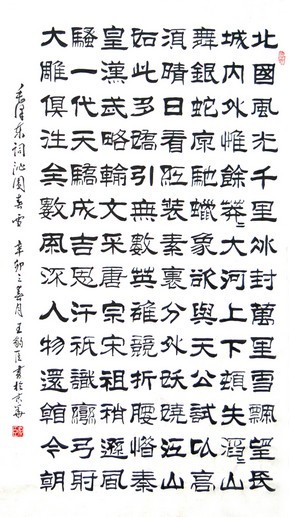 北國風光千里冰封萬里雪飄望長
城內外惟餘莽〻大河上下頓失滔〻山
舞銀蛇原馳蠟象欲與天公試比高
須晴日看紅裝素裹分外妖嬈江山
如此多嬌引無數英雄競折腰惜秦
皇漢武略輸文采唐宗宋祖稍遜風
騷一代天驕成吉思汗祇識彎弓射
大雕俱往矣數風流人物還看今朝
毛澤東詞沁園春雪 辛卯之春月王書於京華